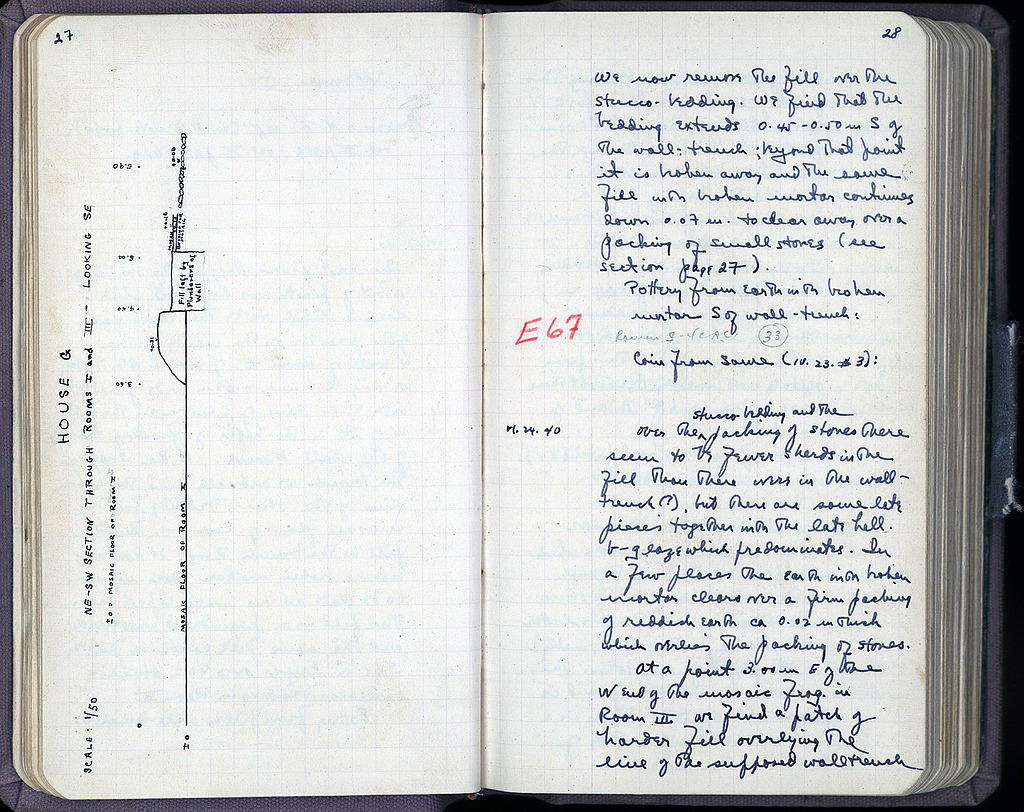 27
HOUSE G
NE-SW SECTION THROUGH ROOMS I and III - LOOKING SE
SCALE: 1/50
±0 = MOSAIC FLOOR OF ROOM I
MOSAIC FLOOR OF ROOM I
±0
0
3.60
4.40
5.90
Fill left by
Plunderers of
Wall
28
We now remove the fill over the
stucco-bedding. We find that the
bedding extends 0.45-0.50 m S of
the wall-trench; beyond that point
it is broken away and the same
fill with broken mortar continues
down 0.07 m. to clear away over a
packing of small stones (see
section page 27).
Pottery from earth with broken
mortar S of wall-trench:
E 67
Roman 3-4 C. A.C. 33
Coin from same (IV. 23. #3):
stucco bedding and the
IV. 24. 40
over the packing of stones there
seem to be fewer sherds in the
fill than there were in the wall-
trench (?), but there are some late
pieces together with the late hell.
b-glaze which predominates. In
a few places the earth with broken
mortar clears over a firm packing
of reddish earth ca 0.02 m thick
which overlies the packing of stones.
At a point 3.00 m E of the
W end of the mosaic frag. in
Room III we find a patch of
harder fill overlying the
line of the supposed wall trench